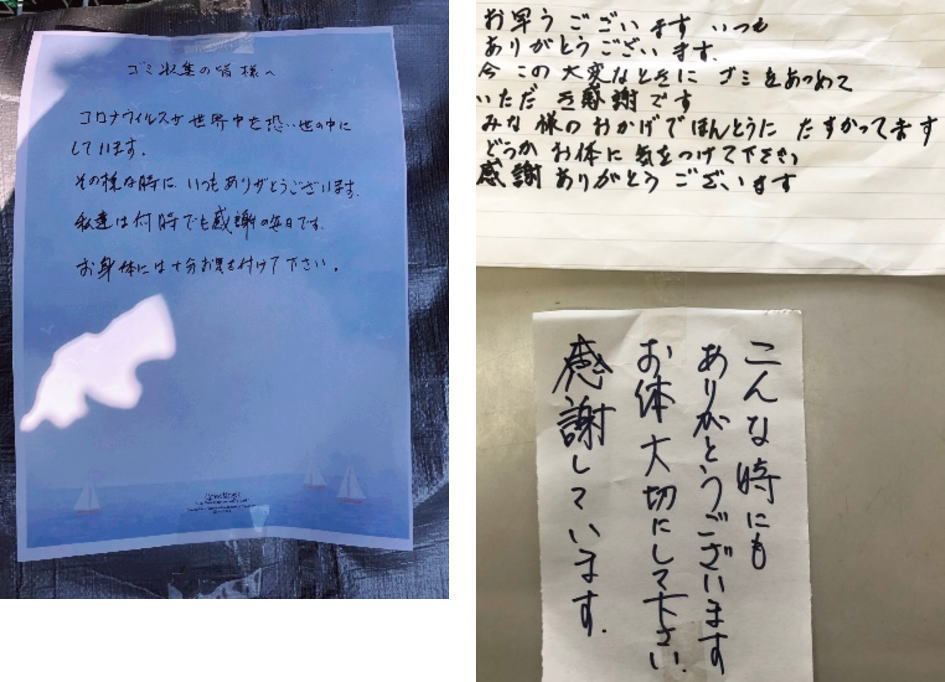 ゴミ収集の皆様へ
コロナウイルスが世界中を恐い世の中に
しています。
その様な時に、いつもありがとうございます。
私達は何時でも感謝の毎日です。
お身体には十分お気を付けて下さい。
お早うございます いつも
ありがとうございます。
今この大変なときに ゴミをあつめて
いただき感謝です
みな様のおかげでほんとうに たすかってます
どうか お体に気をつけて下さい
感謝ありがとう ございます
こんな時にも
ありがとうございます
お体大切にして下さい。
感謝しています。